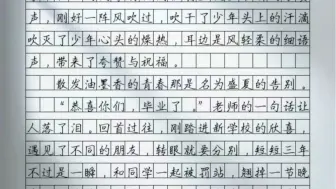 声，刚好一阵风吹过，吹干了少年头上的汗滴
吹灭了少年心头的燥热，耳边是风轻柔的细语
声，带来了夸赞与祝福。
散发油墨香的青春那是名为盛夏的告别。
“恭喜你们，毕业了。”老师的一句话让
人落了泪。回首过往，刚踏进新学校的欣喜，
遇见了不同的朋友，转眼就要分别，短短三年
不过是一瞬，和同学一起被罚站，翘掉一节晚